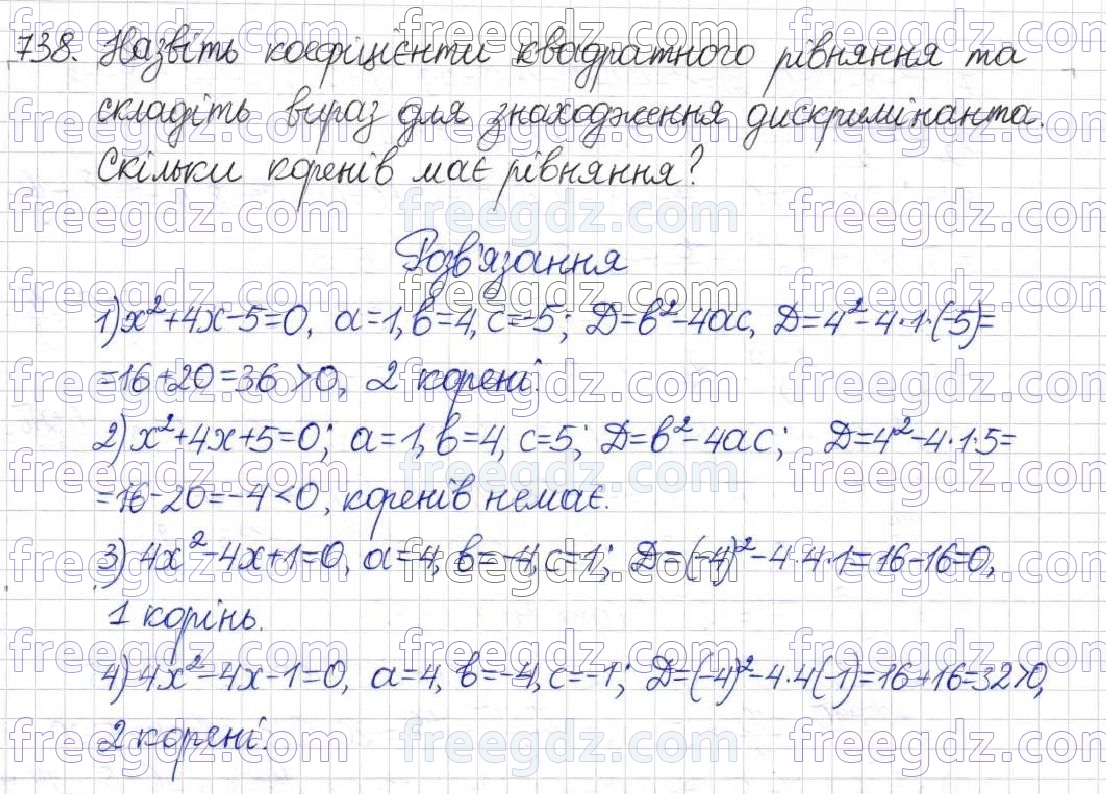 738. Назвіть коефіцієнти квадратного рівняння та
складіть вираз для знаходження дискримінанта.
Скільки коренів має рівняння?
Розв'язання
1) x²+4x-5=0, a=1, в=4, c=-5; Д=в²-4ac, Д=4²-4·1·(-5)=
=16+20=36>0, 2 корені.
2) x²+4x+5=0; a=1, в=4, c=5; Д=в²-4ac; Д=4²-4·1·5=
=16-20=-4<0, коренів немає.
3) 4x²-4x+1=0, a=4, в=-4, c=1; Д=(-4)²-4·4·1=16-16=0,
1 корінь.
4) 4x²-4x-1=0, a=4, в=-4, c=-1; Д=(-4)²-4·4(-1)=16+16=32>0,
2 корені.
freegdz.com